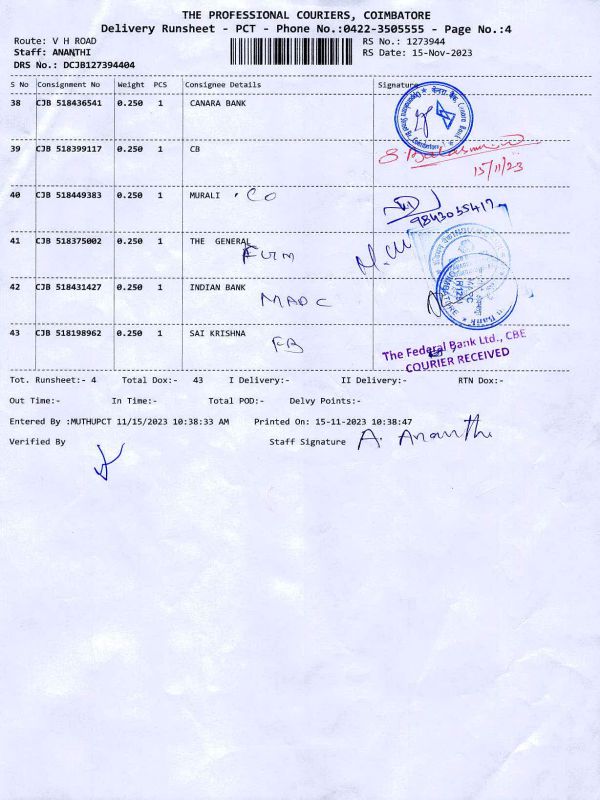 THE PROFESSIONAL COURIERS, COIMBATORE
Delivery Runsheet - PCT - Phone No.:0422-3505555 - Page No.:4
Route: V H ROAD RS No.: 1273944
Staff: ANANTHI RS Date: 15-Nov-2023
DRS No.: DCJB127394404
S No Consignment No Weight PCS Consignee Details Signature
38 CJB 518436541 0.250 1 CANARA BANK
39 CJB 518399117 0.250 1 CB
15/11/23
40 CJB 518449383 0.250 1 MURALI . CO
9843055417
41 CJB 518375002 0.250 1 THE GENERAL
42 CJB 518431427 0.250 1 INDIAN BANK
MADC
43 CJB 518198962 0.250 1 SAI KRISHNA
FB
The Federal Bank Ltd., CBE
COURIER RECEIVED
Tot. Runsheet:- 4 Total Dox:- 43 I Delivery:- II Delivery:- RTN Dox:-
Out Time:- In Time:- Total POD:- Delvy Points:-
Entered By :MUTHUPCT 11/15/2023 10:38:33 AM Printed On: 15-11-2023 10:38:47
Verified By Staff Signature A. Ananthi